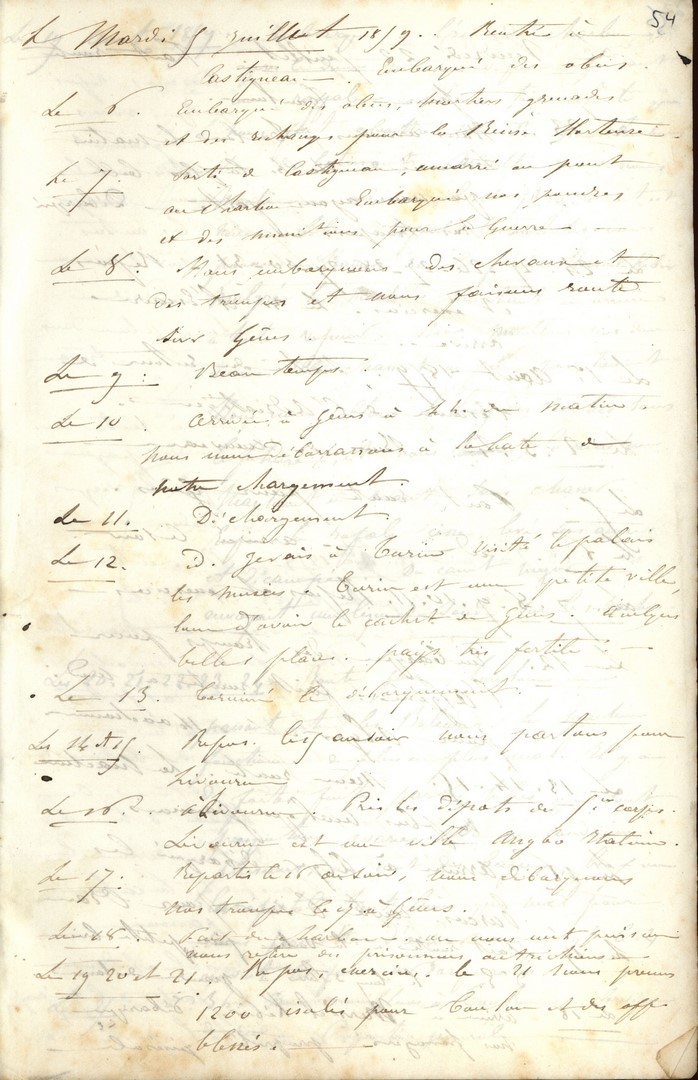 54
Le Mardi 5 Juillet 1859. Rentré à
Castigneau. Embarqué des obus.
Le 6. Embarqué des obus, mortiers, grenades
et des rechanges pour la Reine Hortense
Le 7. Sorti de Castigneau, amarré au pont
au charbon Embarqué nos poudres
et des munitions pour la Guerre
Le 8. Nous embarquons des chevaux et
des troupes et nous faisons route
sur Gênes
Le 9. Beau temps.
Le 10. Arrivée à Gênes à 4 h. du matin
nous nous débarrassons à la hate de
notre chargement.
Le 11. Déchargement.
Le 12. D. Je vais à Turin visité le palais
les musées. Turin est une petite ville,
loin d'avoir le cachet de Gênes. Quelques
belles places. pays très fertile.
Le 13. Terminé le débarquement.
Les 14 et 15. Repos. le 15 au soir nous partons pour
Livourne
Le 16. à Livourne. Pris les dépots du 5ième corps.
Livourne est une ville Anglo Italienne.
Le 17. Repartis le 16 au soir, nous débarquons
nos troupes le 17 à Gênes.
Le 18. Fait du charbon
nous des prisonniers autrichiens
Le 19 20 et 21. Repos, exercices. le 21 nous prenons
1200 isolés pour Toulon et des off
blessés.